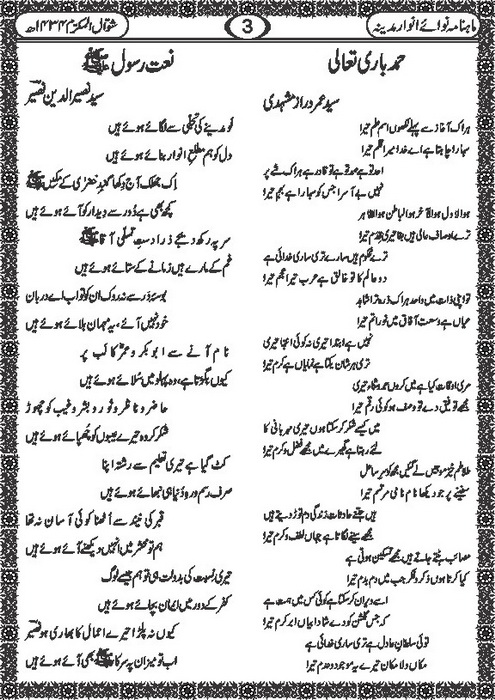 ماہنامہ نوائے انوار مدینہ
3
شوال المکرم ۱۴۳۴ھ
حمد باری تعالی
سید عمر دراز مشہدی
ہراک آغاز سے پہلے لکھوں اسم علم تیرا
سہارا چاہتا ہے اے خدا میرا قلم تیرا
احد تو ہے صمد تو ہے تو قادر ہے ہراک شے پر
نہیں ہے آسرا جس کو سہارا ہے بہم تیرا
ھوالاول ھوالآخر ھوالباطن ھوالظاہر
ترے اوصاف عالی ہیں بقا تیری قدم تیرا
ترے محکوم ہیں سارے تری ساری خدائی ہے
دو عالم کا تو خالق ہے عرب تیرا عجم تیرا
تو اپنی ذات میں واحد ہراک ذرہ ترا شاہد
عیاں ہے وسعت آفاق میں نور اتم تیرا
نہیں ہے ابتدا تیری نہ کوئی انتہا تیری
تری ہر شان یکتا ہے نمایاں ہے کرم تیرا
مری اوقات کیا ہے میں کروں حمد و ثناء تیری
مجھے توفیق دے تو وصف ہو کوئی رقم تیرا
میں کیسے شکر کر سکتا ہوں تیری مہربانی کا
لئے رہتا ہے گھیرے میں مجھے فضل و کرم تیرا
طلاطم خیز موجیں لے گئیں مجھ کو سر ساحل
سفینے پر جو دیکھا نام نامی مرتسم تیرا
ہیں جتنے حادثات زندگی دم توڑ دیتے ہیں
مجھے سینے لگاتا ہے جہاں لطف و کرم تیرا
مصائب بیتے جاتے ہیں مجھے تسکین ہوتی ہے
کیا کرتا ہوں ذکر و فکر جب میں دم بدم تیرا
اسے ویران کر سکتا ہے کوئی کس میں ہمت ہے
کہ جس گلشن کو دے شادابیاں ابر کرم تیرا
توئی سلطان عادل ہے تری ساری خدائی ہے
مکاں و لامکاں تیرے یہ موجود و عدم تیرا
نعت رسول ﷺ
سید نصیر الدین نصیر
لو مدینے کی تجلی سے لگائے ہوئے ہیں
دل کو ہم مطلع انوار بنائے ہوئے ہیں
اک جھلک آج دکھا گنبد خضریٰ کے مکیں ﷺ
کچھ بھی ہے دور سے دیدار کو آئے ہوئے ہیں
سر پہ رکھ دیجئے ذرا دست تسلی آقا ﷺ
غم کے مارے ہیں زمانے کے ستائے ہوئے ہیں
بوسہء در سے نہ روک ان کو تو اب اے دربان
خود نہیں آئے، یہ مہمان بلائے ہوئے ہیں
نام آنے سے ابو بکر و عمر کا لب پر
کیوں بگڑتا ہے، وہ پہلو میں سلائے ہوئے ہیں
حاضر و ناظر و نور و بشر و غیب کو چھوڑ
شکر کر وہ تیرے عیبوں کو چھپائے ہوئے ہیں
کٹ گیا ہے تیری تعلیم سے رشتہ اپنا
صرف رسم و رہ دنیا ہی نبھائے ہوئے ہیں
قبر کی نیند سے اٹھنا کوئی آسان نہ تھا
ہم تو محشر میں انہیں دیکھنے آئے ہوئے ہیں
تیری نسبت کی بدولت ہی تو ہم جیسے لوگ
کفر کے دور میں ایمان بچائے ہوئے ہیں
کیوں نہ پلڑا تیرے اعمال کا بھاری ہو نصیر
اب تو میزان پہ سرکار ﷺ بھی آئے ہوئے ہیں